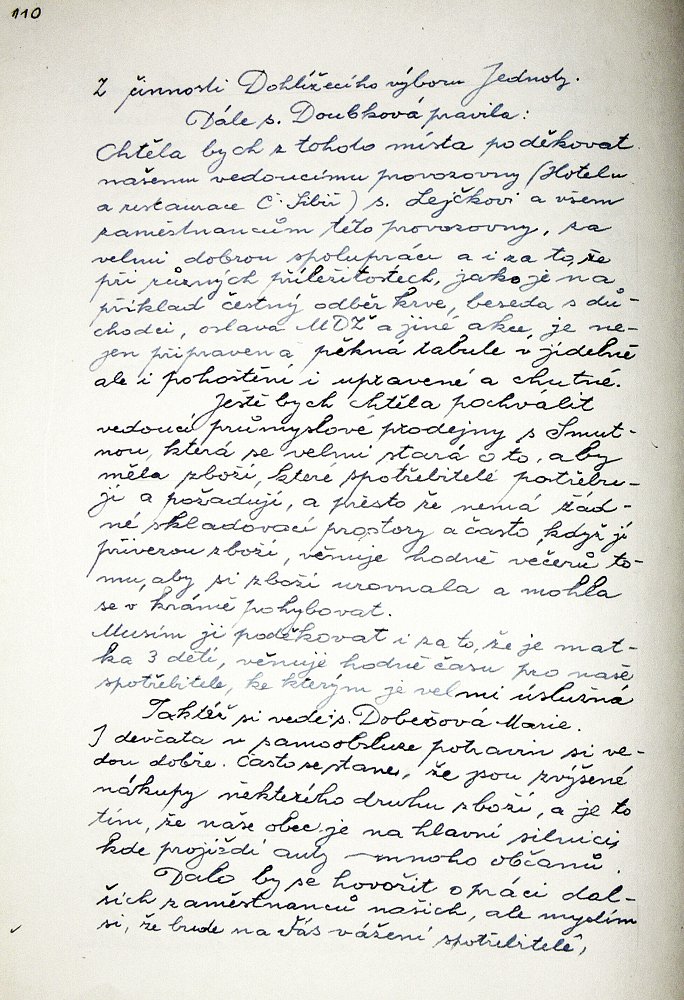 110
Z činnosti Dohlížecího výboru Jednoty.
Dále s. Doubková pravila:
Chtěla bych z tohoto místa poděkovat
našemu vedoucímu provozovny (Hotelu
a restaurace Č. Síbiř) s. Lejčkovi a všem
zaměstnancům této provozovny, za
velmi dobrou spolupráci a i za to, že
při různých příležitostech, jako je na
příklad čestný odběr krve, beseda s dů-
chodci, oslava MDŽ a jiné akce, je ne-
jen připravena pěkná tabule v jídelně
ale i pohoštění i upravené a chutné.
Ještě bych chtěla pochválit
vedoucí průmyslové prodejny s Smut-
nou, která se velmi stará o to, aby
měla zboží, které spotřebitelé potřebu-
jí a požadují, a přesto že nemá žád-
né skladovací prostory a často když jí
přivezou zboží, věnuje hodně večerů to-
mu, aby si zboží urovnala a mohla
se v krámě pohybovat.
Musím jí poděkovat i za to, že je mat-
ka 3 dětí, věnuje hodně času pro naše
spotřebitele, ke kterým je velmi úslužná
Taktéž si vede s. Dobešová Marie.
I děvčata v samoobsluze potravin si ve-
dou dobře. Často se stane, že jsou zvýšené
nákupy některého druhu zboží, a je to
tím, že naše obec je na hlavní silnici,
kde projíždí auty mnoho občanů.
Dalo by se hovořit o práci dal-
ších zaměstnanců našich, ale myslím
si, že bude na Vás vážení spotřebitelé,